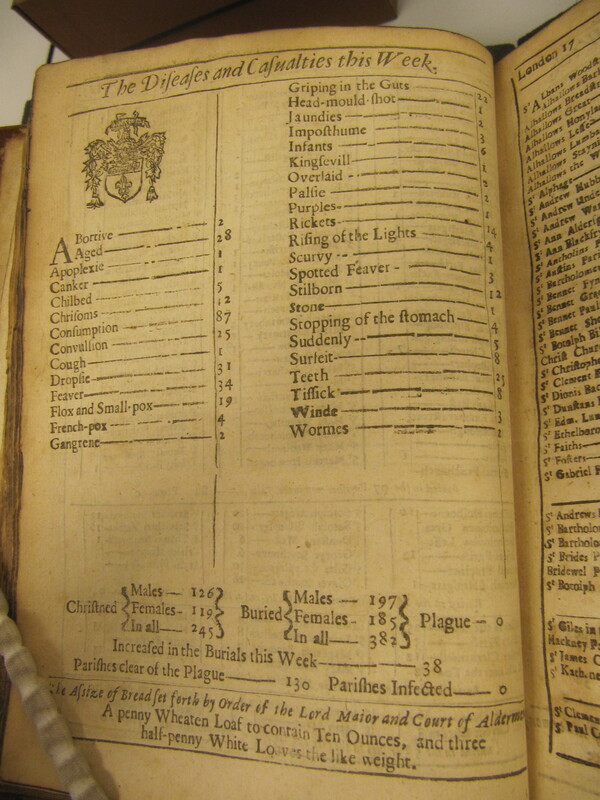 The Diſeaſes and Caſualties this Week.
ABortive 2
Aged 28
Apoplexie 1
Canker 1
Chilbed 5
Chriſoms 12
Conſumption 87
Convulſion 25
Cough 1
Dropſie 31
Feaver 34
Flox and Small-pox 19
French-pox 4
Gangrene 2
Griping in the Guts 22
Head-mould-ſhot 1
Jaundies 2
Impoſthume 3
Infants 6
Kingſevill 1
Overlaid 2
Palſie 2
Purples 1
Rickets 14
Riſing of the Lights 4
Scurvy 1
Spotted Feaver 3
Stilborn 12
Stone 1
Stopping of the ſtomach 4
Suddenly 5
Surfeit 8
Teeth 25
Tiſſick 8
Winde 3
Wormes 2
Chriſtned Males 126 Females 119 In all 245
Buried Males 197 Females 185 In all 382
Plague 0
Increaſed in the Burials this Week 38
Pariſhes clear of the Plague 130 Pariſhes Infected 0
The Aſſize of Bread ſet forth by Order of the Lord Maior and Court of Alderm
A penny Wheaten Loaf to contain Ten Ounces, and three
half-penny White Loaves the like weight.
London 17
Sᵗ Albans Woodſt
Alhallows Bark
Alhallows Breadſt
Alhallows Great
Alhallows Honylan
Alhallows Leſſe
Alhallows Lumba
Alhallows Stayni
Alhallows the W
Sᵗ Alphage
Sᵗ Andrew Hubb
Sᵗ Andrew Unde
Sᵗ Andrew War
Sᵗ Ann Alderig
Sᵗ Ann Blackfr
Sᵗ Antholins P
Sᵗ Auſtins Pari
Sᵗ Bartholome
Sᵗ Bennet Fyn
Sᵗ Bennet Gra
Sᵗ Bennet Paul
Sᵗ Bennet She
Sᵗ Botolph Bil
Chriſt Chur
Sᵗ Chriſtophe
Sᵗ Clement E
Sᵗ Dionis Bac
Sᵗ Dunſtans E
Sᵗ Edm. Lum
Sᵗ Ethelboro
Sᵗ Faiths
Sᵗ Foſters
Sᵗ Gabriel F
Sᵗ Andrews
Sᵗ Bartholo
Sᵗ Bartholo
Sᵗ Brides P
Bridewel P
Sᵗ Botolph
Sᵗ Giles in
Hackney Pa
Sᵗ James C
Sᵗ Kath. ne
Sᵗ Clemen
Sᵗ Paul C